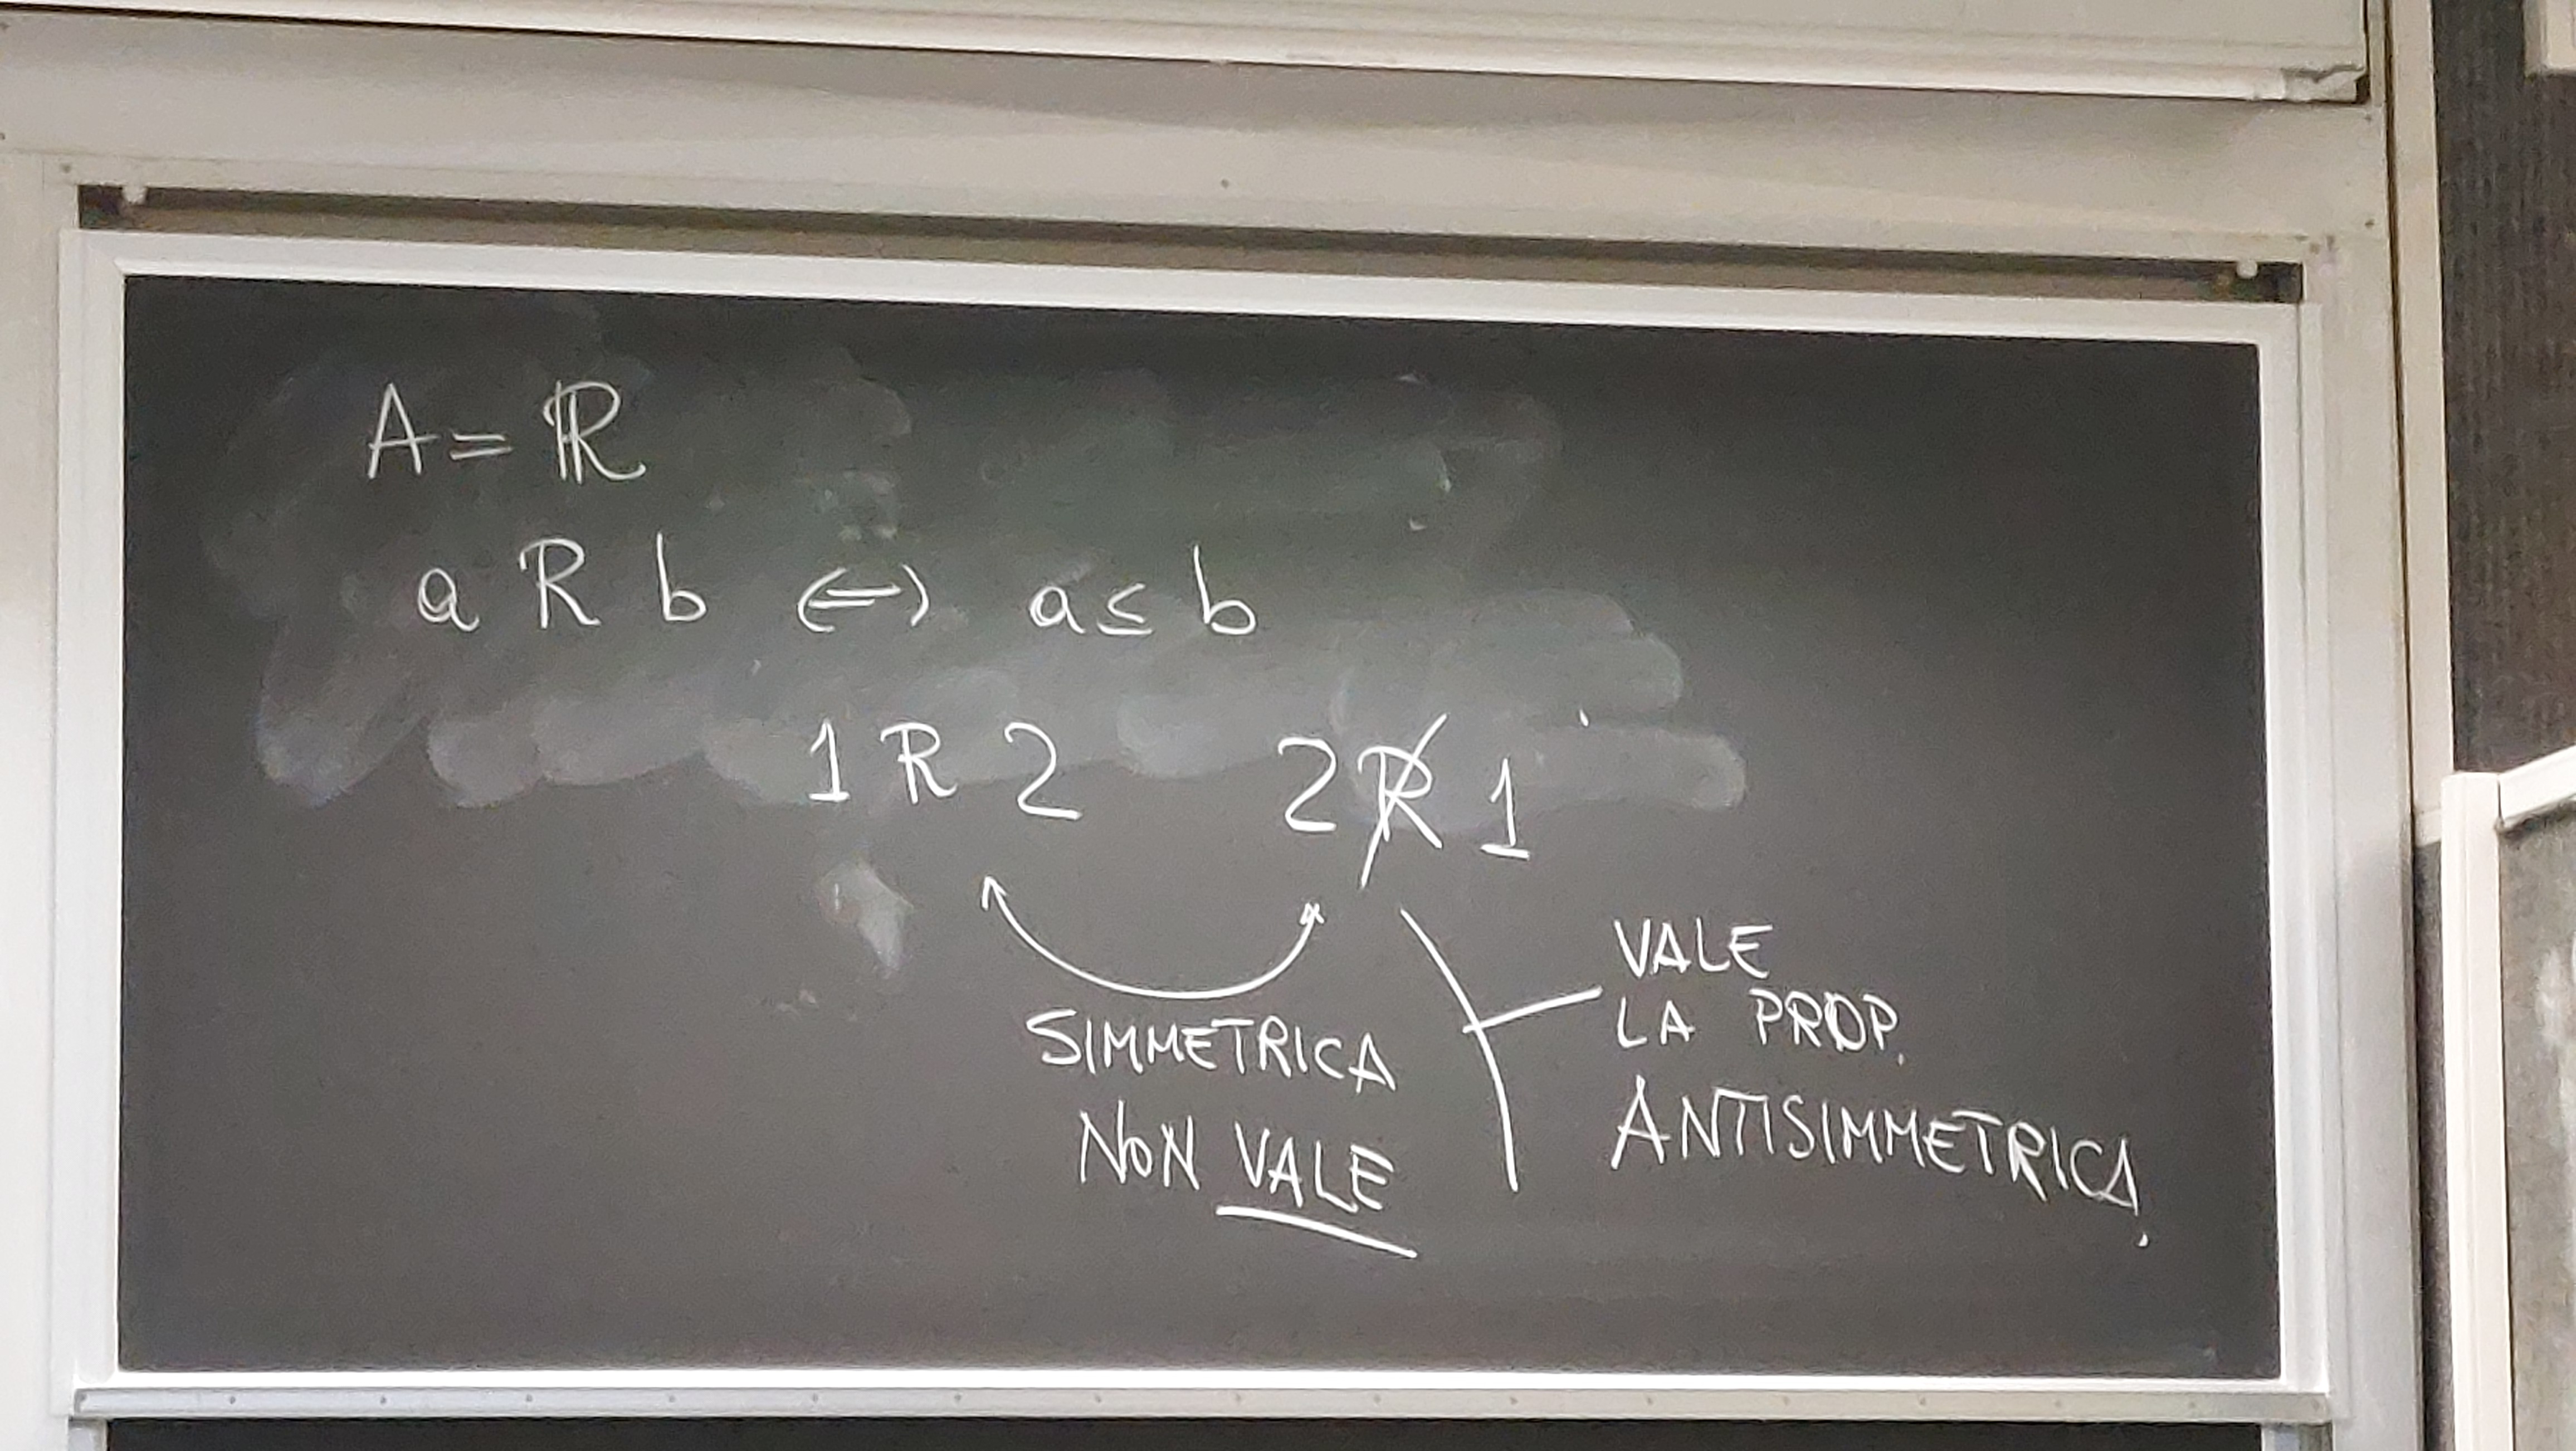 A = ℝ
a R b ⟺ a ≤ b
1 R 2 2 R̸ 1
SIMMETRICA
NON VALE
VALE
LA PROP.
ANTISIMMETRICA.